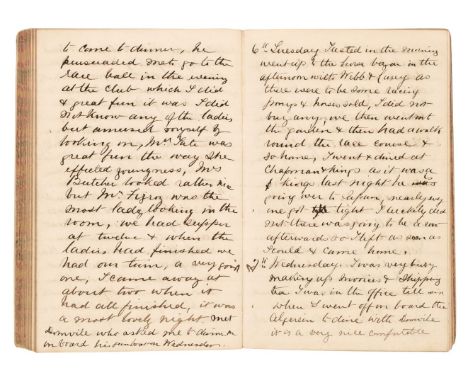 to come to dinner, he
persuaded me to go to the
race ball in the evening
at the Club which I did
& great fun it was I did
not know any of the ladies
but amused myself by
looking on, Mrs Tate was
great fun the way she
effected youngness, Mrs
Butcher looked rather nice
but Mrs Fitzroy was the
most lady looking in the
room, we had supper
at twelve & when the
ladies had finished we
had our turn, a very good
one, I came away at
about two when it
had all finished, it was
a most lovely night met
Domvile who asked me to dinner
on board his gunboat on Wednesday
6th Tuesday I acted in the morning
went up to the horse bazaar in the
afternoon with Webb & Carey as
there were to be some racing
ponys & horses sold, I did not
buy any, we then went
the garden & then had a walk
round the race course &
so home, I went & dined at
Chapman & Kings as it was a
Kings last night he
going over to Japan, nearly every
one got tight I luckily did
not there was going to be
afterwards so I left as soon as
I could & came home
7th Wednesday, I was very busy
making up Invoices & Shipping
tea I was in the office till six
when I went off on board the
Algerine to dine with Domvile
it is a very nice comfortable